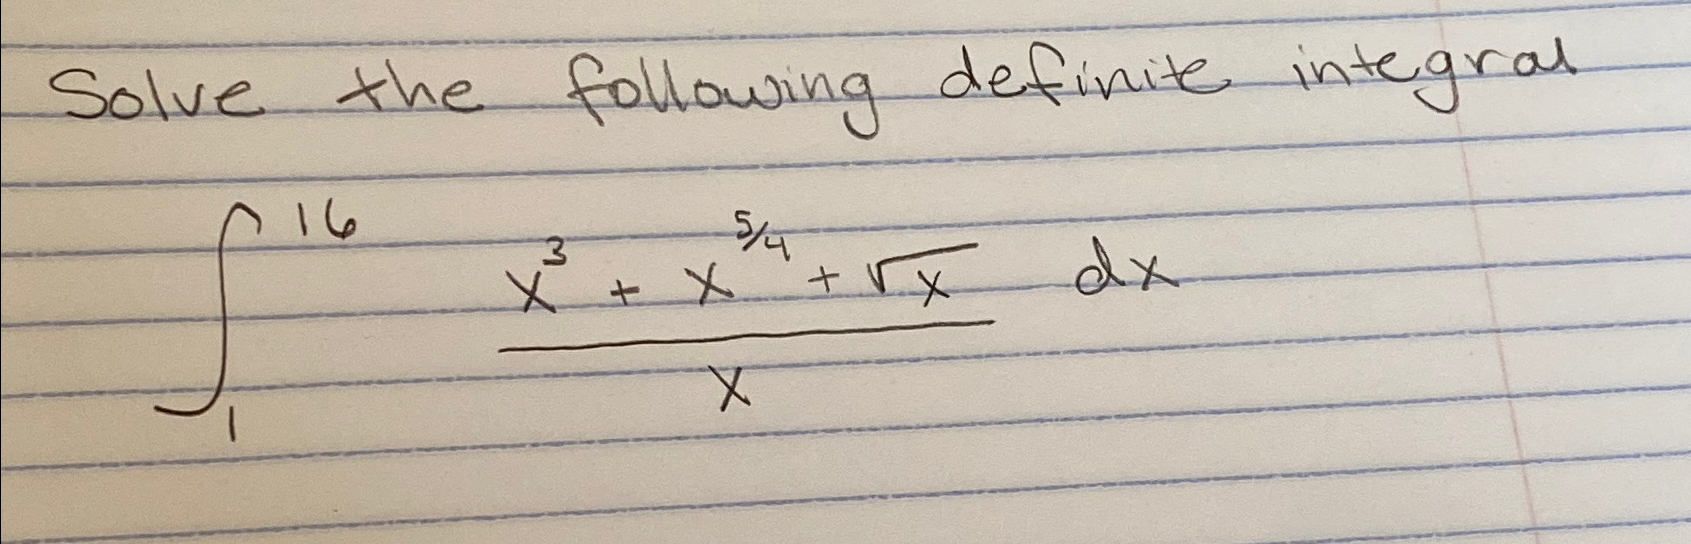 Solve the following definite integral
∫₁¹⁶ (x³ + x^(5/4) + √x) / x dx